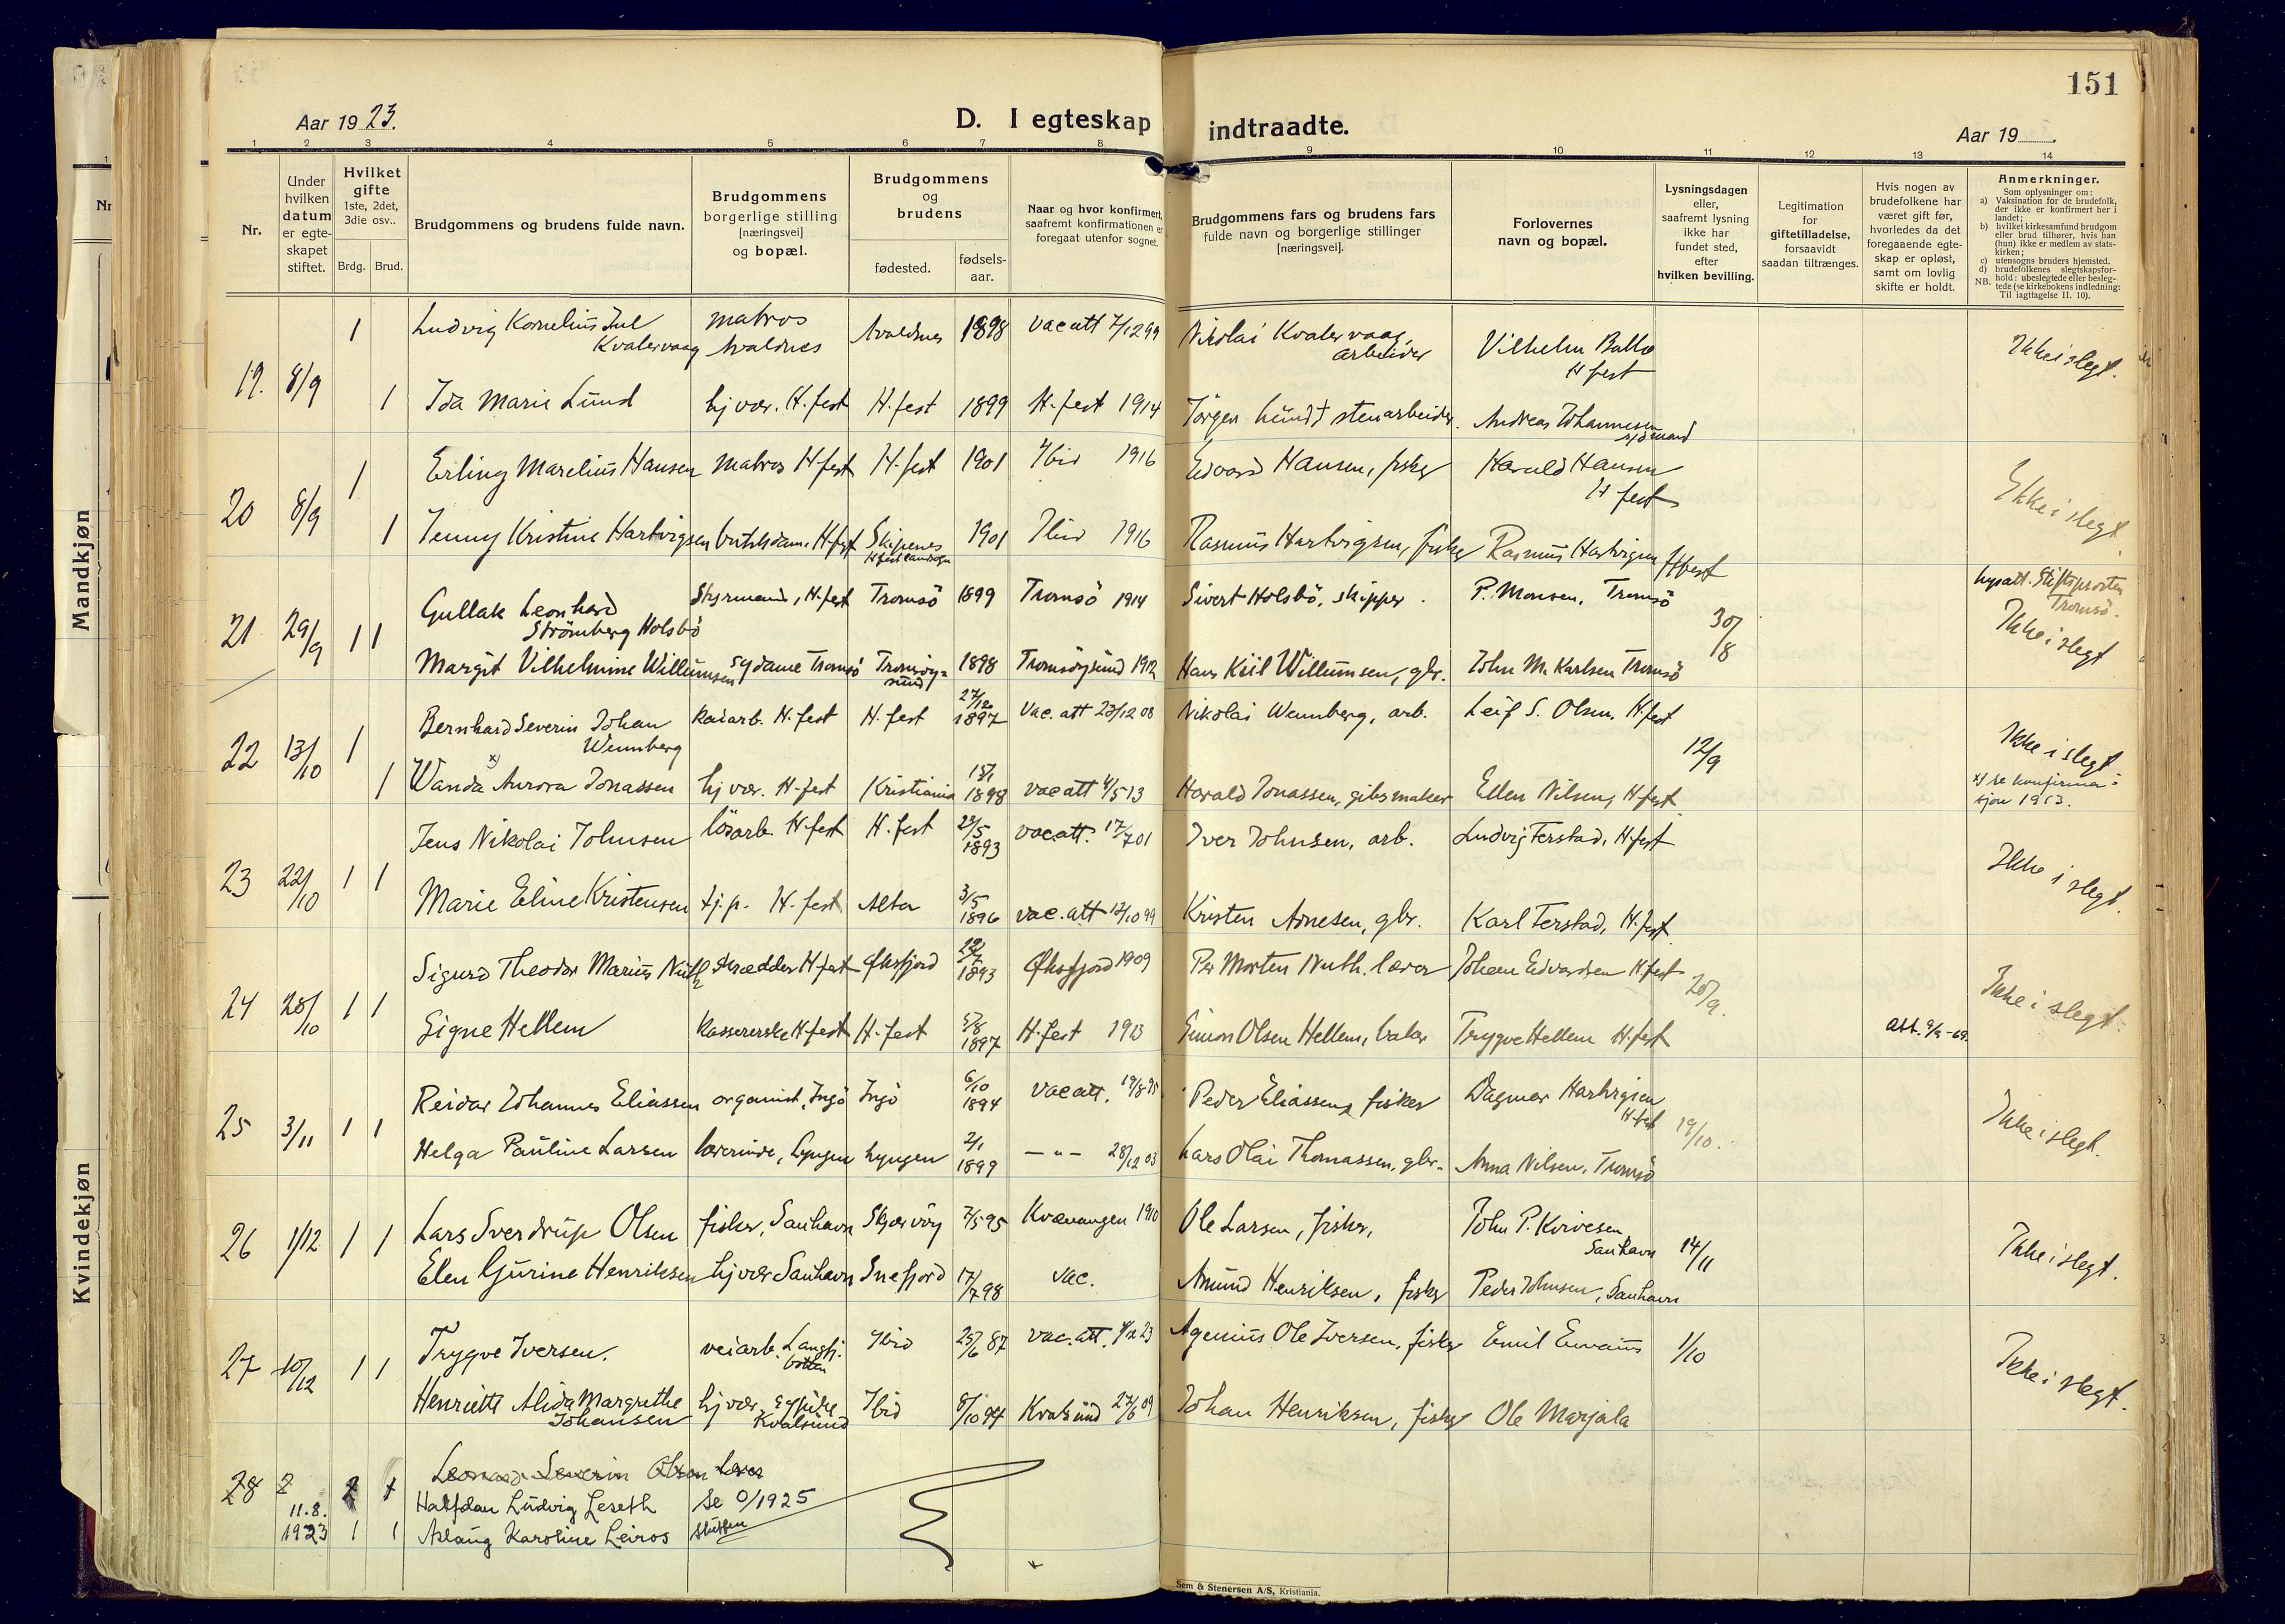 151
Aar 1923.
D. I egteskap indtraadte.
Aar 19
1 2 3 4 5 6 7 8 9 10 11 12 13 14
Nr.
Under hvilken datum er egteskapet stiftet.
Hvilket gifte 1ste, 2det, 3die osv..
Brdg. Brud.
Brudgommens og brudens fulde navn.
Brudgommens borgerlige stilling [næringsvei] og bopæl.
Brudgommens og brudens
fødested.
fødsels-aar.
Naar og hvor konfirmert, saafremt konfirmationen er foregaat utenfor sognet.
Brudgommens fars og brudens fars fulde navn og borgerlige stillinger [næringsvei].
Forlovernes navn og bopæl.
Lysningsdagen eller, saafremt lysning ikke har fundet sted, efter hvilken bevilling.
Legitimation for giftetilladelse, forsaavidt saadan tiltrænges.
Hvis nogen av brudefolkene har været gift før, hvorledes da det foregaaende egteskap er opløst, samt om lovlig skifte er holdt.
Anmerkninger.
Som oplysninger om:
a) Vaksination for de brudefolk, der ikke er konfirmert her i landet;
b) hvilket kirkesamfund brudgom eller brud tilhører, hvis han (hun) ikke er medlem av statskirken;
c) utensogns bruders hjemsted.
d) brudefolkenes slegtskapsforhold: ubeslegtede eller beslegtede (se kirkebokens indledning:
NB. Til iagttagelse II. 10).
Mandkjøn
Kvindekjøn
19. 8/9
1 Ludvig Kornelius Juul Kvalevaag matros Avaldnes Avaldnes 1898 vac att 7/12 99 Nikolai Kvalevaag, arbeider Vilhelm Balke H fest Ikke i slegt.
1 Ida Marie Lund hj vær. H.fest H.fest 1899 H.fest 1914 Jörgen Lund † stenarbeider. Andreas Johannesen sjömand
20 8/9
1 Erling Marelius Hansen matros H.fest H.fest 1901 Ibid 1916 Edvard Hansen, fisker Harald Hansen H fest Ikke i slegt
1 Jenny Kristine Hartvigsen butikdame H.fest Skipenes H.fest landsogn 1901 Ibid 1916 Rasmus Hartvigsen, fisker Rasmus Hartvigsen Hfest
21 29/9 1 1
Gullak Leonhard Strömberg Holsbö Styrmand, H.fest Tromsö 1899 Tromsö 1914 Sivert Holsbö, skipper. P. Monsen, Tromsö 30/8 lysatt. Stiftsprosten Tromsö. Ikke i slegt
Margit Vilhelmine Willumsen sydame Tromsö Tromsöysund 1898 Tromsöysund 1912 Hans Kiil Willumsen, gbr. John M. Karlsen Tromsö
22 13/10
1 Bernhard Severin Johan Wennberg kaiarb. H.fest H.fest 27/12 1897 Vac. att 23/12 08 Nikolai Wennberg, arb. Leif S. Olsen, H.fest 12/9 Ikke i slegt
1 Wanda x) Aurora Jonassen hj vær. H.fest Kristiania 13/1 1898 vac att 4/5 13 Harald Jonassen, gibsmaker Ellen Nilsen, H.fest x) se konfirmasjon 1913.
23 22/10 1 1
Jens Nikolai Johnsen lösarb. H.fest H.fest 23/5 1893 vac att. 17/7 01 Iver Johnsen, arb. Ludvig Ferstad, H.fest Ikke i slegt.
Marie Eline Kristensen tj.p. H.fest Alta 3/5 1896 vac. att 13/10 99 Kristen Arnesen, gbr. Karl Ferstad, H.fest
24 28/10 1 1
Sigurd Theodor Marius Nuth skrædder H.fest Øksfjord 1893 Øksfjord 1909 Per Morten Nuth. lærer Johan Edvardsen H.fest 20/9. Ikke i slegt.
Signe Hellem Kassererske H.fest H.fest 5/8 1897 H.fest 1913 Simon Olsen Hellem, baker Trygve Hellem H.fest att. 9/9-69.
25 3/11 1 1
Reidar Johannes Eliassen organist, Ingö Ingö 6/10 1894 vac att. 19/8 95 Peder Eliassen, fisker Dagmar Hartvigsen H.fest 19/10. Ikke i slegt.
Helga Pauline Larsen lærerinde, Lyngen Lyngen 2/1 1899 — " — 28/12 03 Lars Olai Thomassen, gbr. Anna Nilsen, Tromsö
26 1/12 1 1
Lars Sverdrup Olsen fisker, Sanhavn Skjærvöy 7/5 95 Kvænangen 1910 Ole Larsen, fisker, John P. Korvesen Sanhavn 14/11 Ikke i slegt.
Elen Gurine Henriksen hj vær Sanhavn Snefjord 17/7 98 vac. Amund Henriksen, fisker Peder Johnsen, Sanhavn
27 10/12 1 1
Trygve Iversen. veiarb. Langfj. botten Ibid 25/6 87 vac. att. 4/12 23 Agenius Ole Iversen, fisker Emil 1/10 Ikke i slegt.
Henriette Alida Margrethe Johansen hj vær. Kvalsund Ibid 8/10 94 Kvalsund 27/6 09 Johan Henriksen, fisker Ole Marjala
28 2 2 1 Leonard Severin Olsen lærer
11.8. Halfdan Ludvig Leseth se O/1925
1923 1 1 Aslaug Karoline Leiros slutten
Sem & Stenersen A/S, Kristiania.